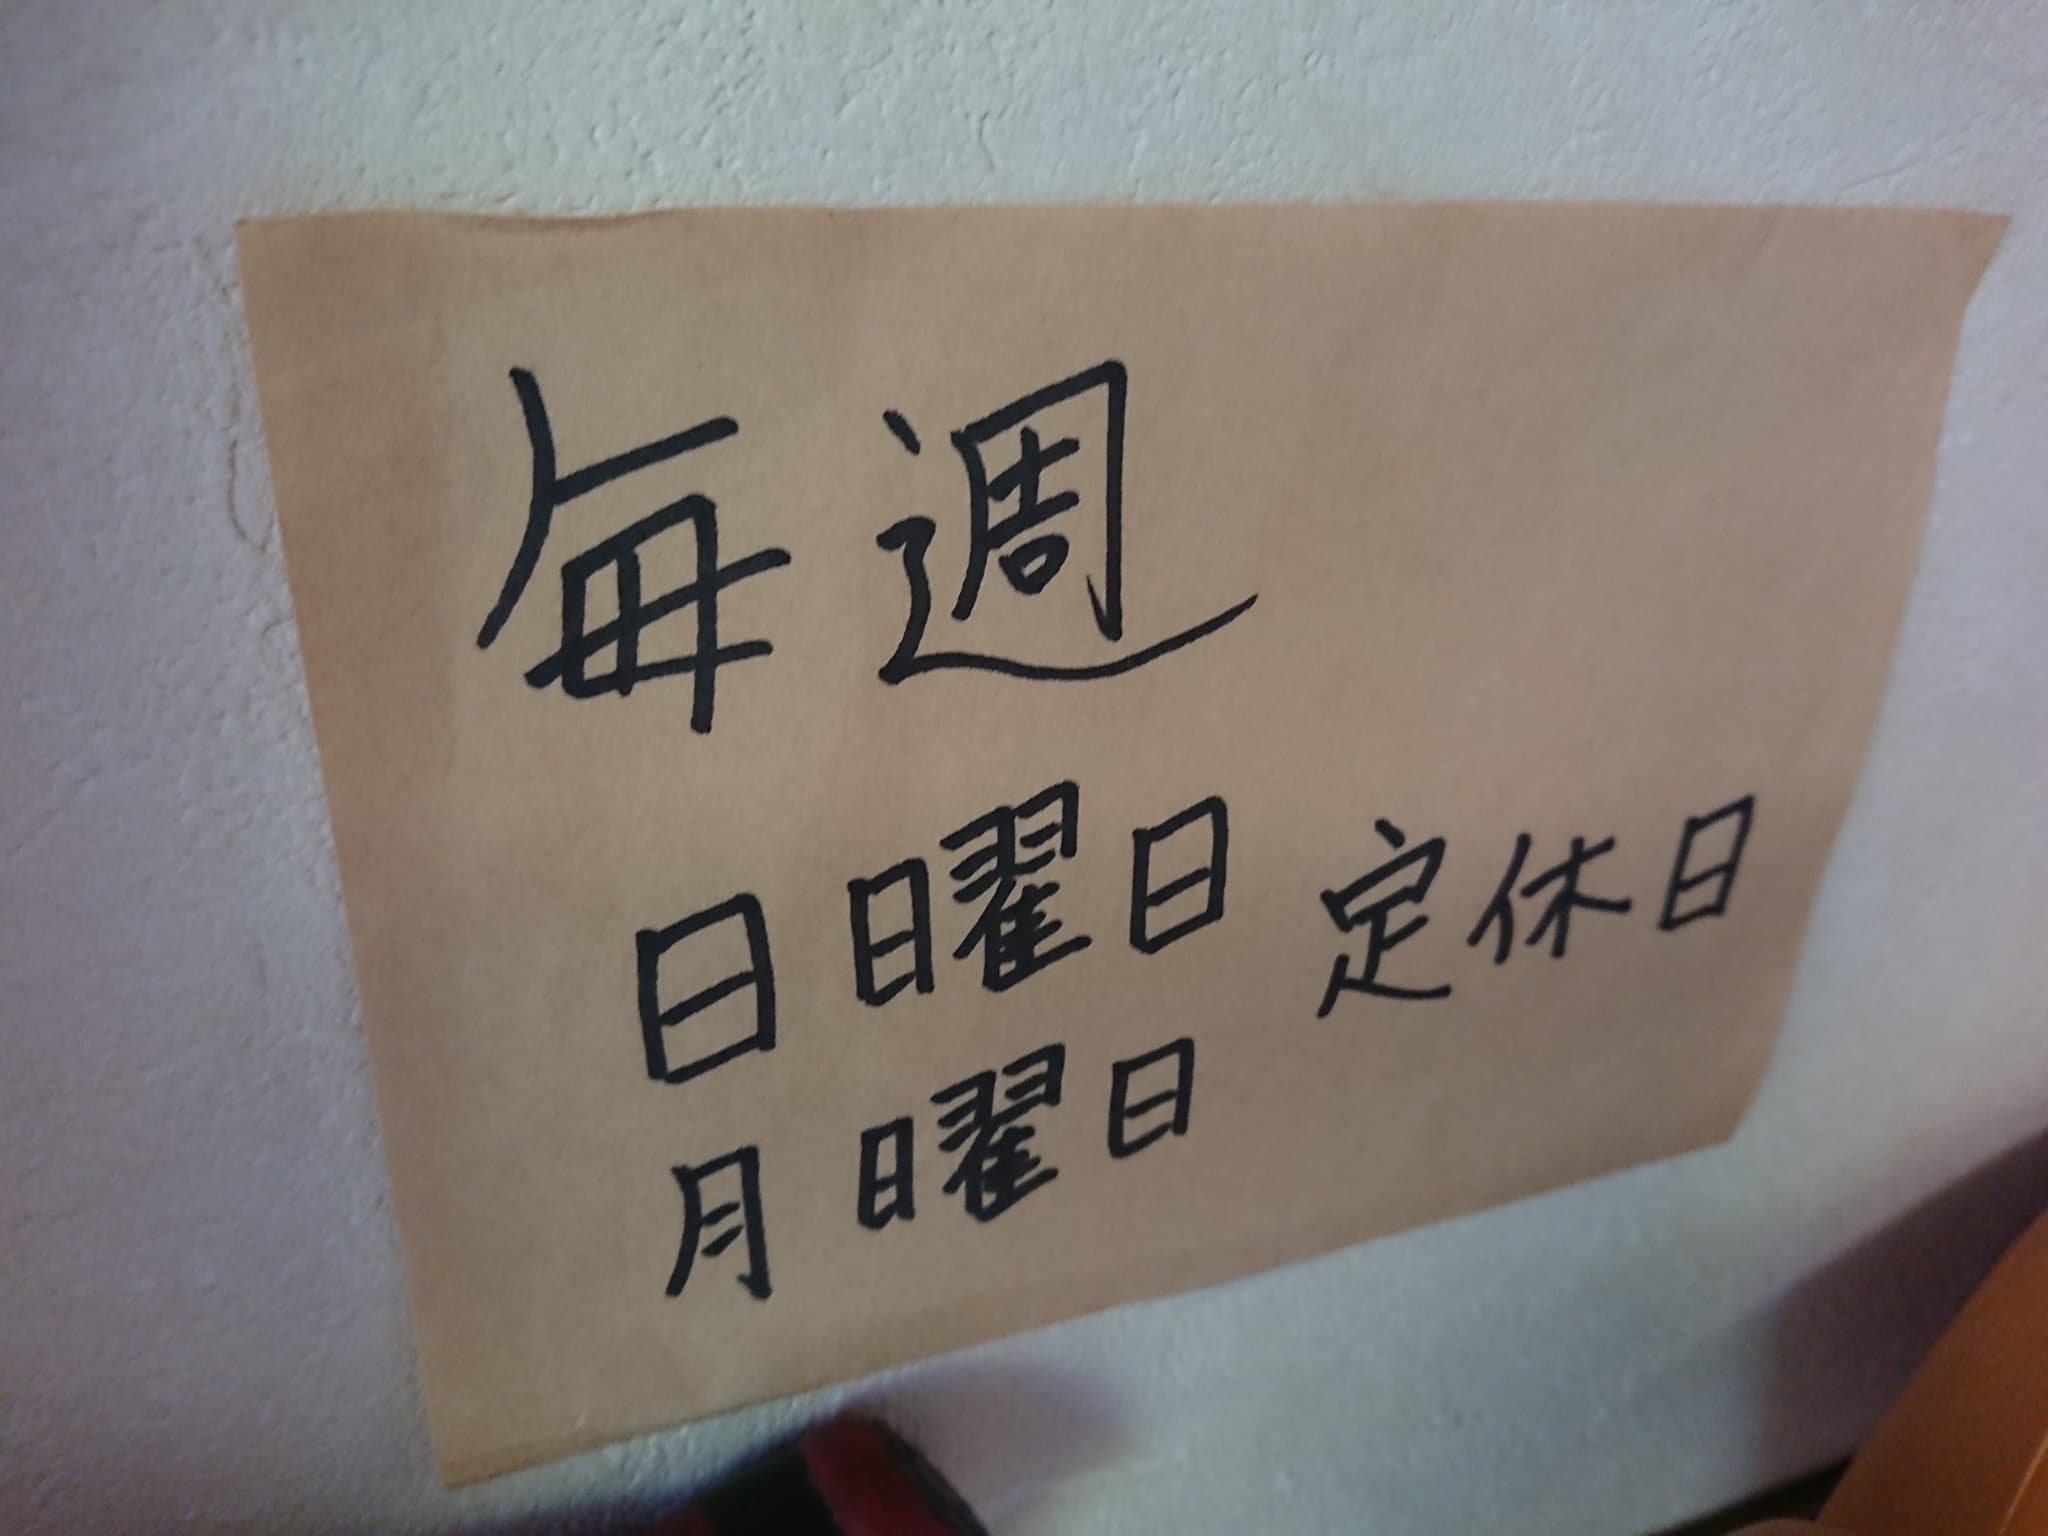 毎週
日曜日 定休日
月曜日